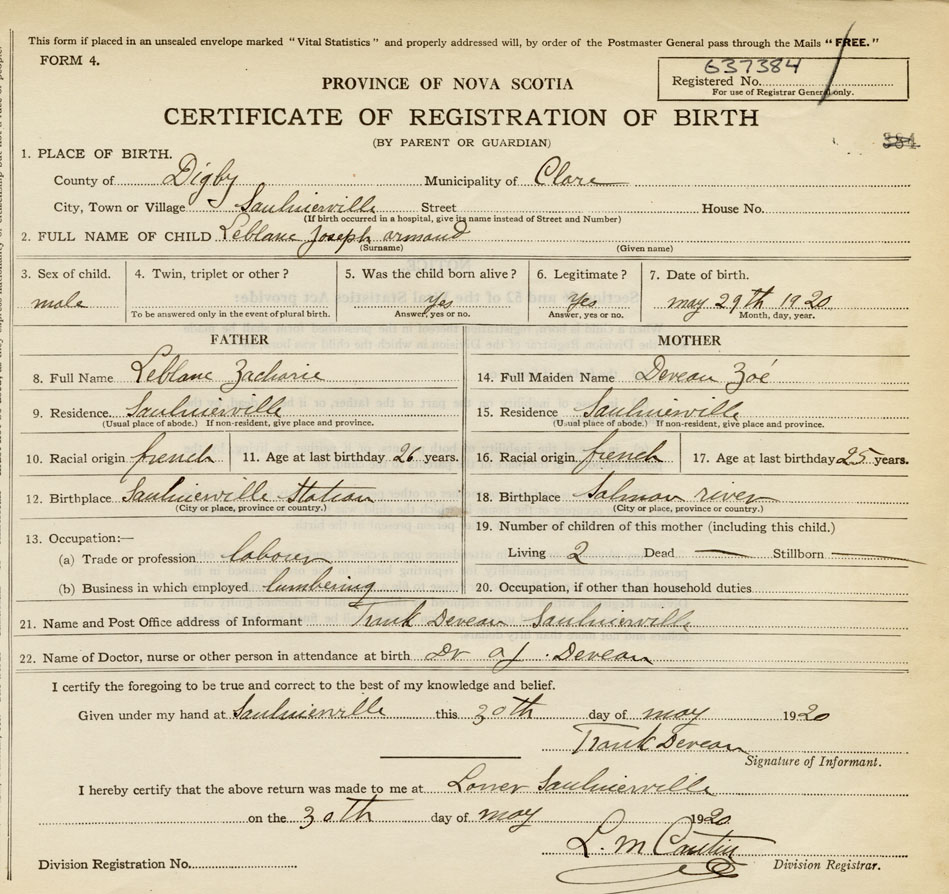 This form if placed in an unsealed envelope marked "Vital Statistics" and properly addressed will, by order of the Postmaster General pass through the Mails "FREE."
FORM 4.
637384
Registered No.
For use of Registrar General only.
PROVINCE OF NOVA SCOTIA
CERTIFICATE OF REGISTRATION OF BIRTH
(BY PARENT OR GUARDIAN)
384
1. PLACE OF BIRTH.
County of Digby Municipality of Clare
City, Town or Village Saulnierville Street House No.
(If birth occurred in a hospital, give its name instead of Street and Number)
2. FULL NAME OF CHILD Leblanc Joseph armand
(Surname) (Given name)
3. Sex of child. 4. Twin, triplet or other? 5. Was the child born alive? 6. Legitimate? 7. Date of birth.
male Yes Yes may 29th 1920
To be answered only in the event of plural birth. Answer, yes or no. Answer, yes or no. Month, day, year.
FATHER MOTHER
8. Full Name Leblanc Zacharie 14. Full Maiden Name Deveau Zoé
9. Residence. Saulnierville 15. Residence Saulnierville
(Usual place of abode.) If non-resident, give place and province. (Usual place of abode.) If non-resident, give place and province.
10. Racial origin french 11. Age at last birthday 26 years. 16. Racial origin french 17. Age at last birthday 25 years.
12. Birthplace Saulnierville Station 18. Birthplace Salmon river
(City or place, province or country.) (City or place, province or country.)
13. Occupation:— 19. Number of children of this mother (including this child.)
(a) Trade or profession laborer Living 2 Dead — Stillborn —
(b) Business in which employed lumbering 20. Occupation, if other than household duties
21. Name and Post Office address of Informant Frank Deveau Saulnierville
22. Name of Doctor, nurse or other person in attendance at birth Dr Deveau
I certify the foregoing to be true and correct to the best of my knowledge and belief.
Given under my hand at Saulnierville this 30th day of may 1920
Frank Deveau
Signature of Informant.
I hereby certify that the above return was made to me at Lower Saulnierville
on the 30th day of may 1920
L. M
Division Registration No. Division Registrar.